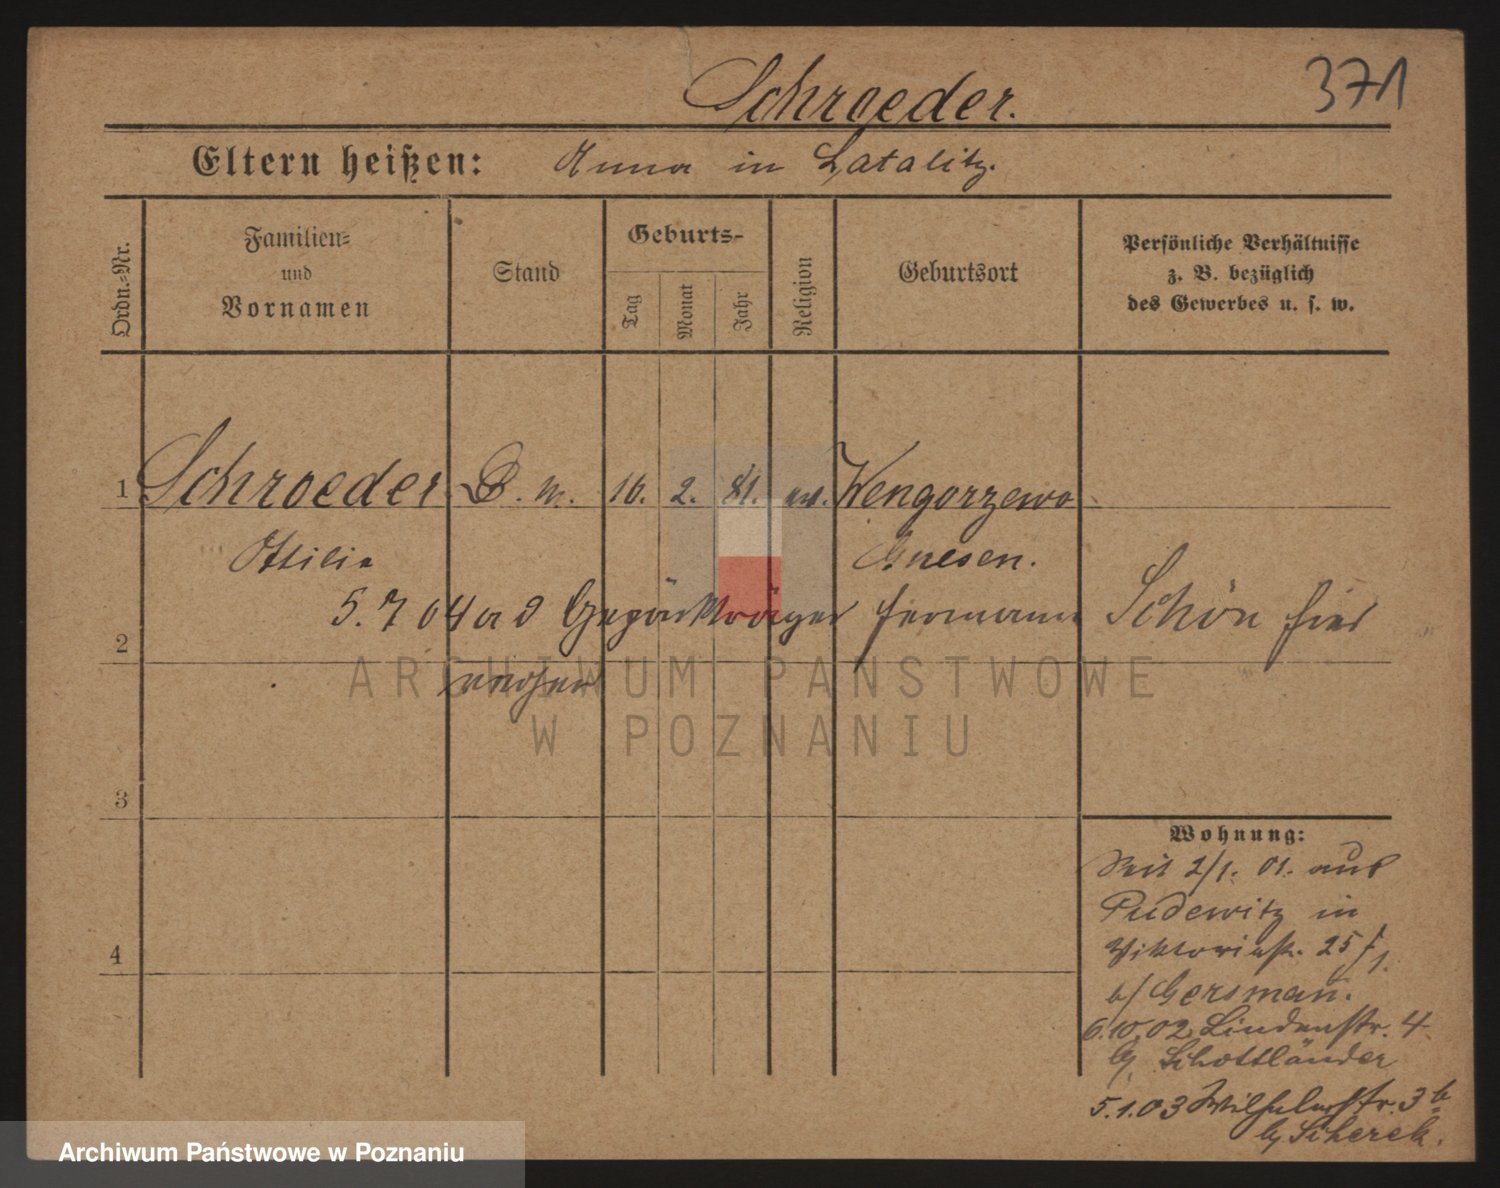 371
Schroeder.
Eltern heißen: Anna in Latalitz.
Ordn.-Nr.
Familien- und Vornamen
Stand
Geburts-
Tag
Monat
Jahr
Religion
Geburtsort
Persönliche Verhältnisse
z. B. bezüglich
des Gewerbes u. s. w.
1 Schroeder D. m. 16. 2. 81. ev. Wengorzewo
Ottilie Gnesen.
5. 7 04 a d Gepäckträger Hermann Schön hier
2
ARCHIWUM PAŃSTWOWE
W POZNANIU
3
4
Wohnung:
Seit 2/1. 01. aus
Pudewitz in
Viktoriastr. 25 I
b/ Gersman.
6.10.02 Lindenstr. 4
b/ Schottländer
5.1.03 Wilhelmstr. 3 b
b/ Scherek.
Archiwum Państwowe w Poznaniu